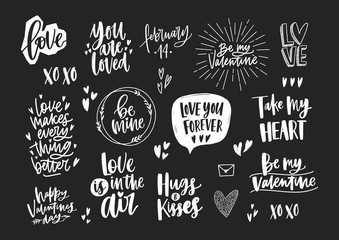 love
You
are
loved
february
14
Be my
Valentine
LO
VE
XO XO
Love
makes
every
thing
better
be
mine
LOVE YOU
FOREVER
Take my
HEART
Love
is in the
air
Hugs
&
Kisses
Be my
Valentine
happy
Valentine's
day
XO XO